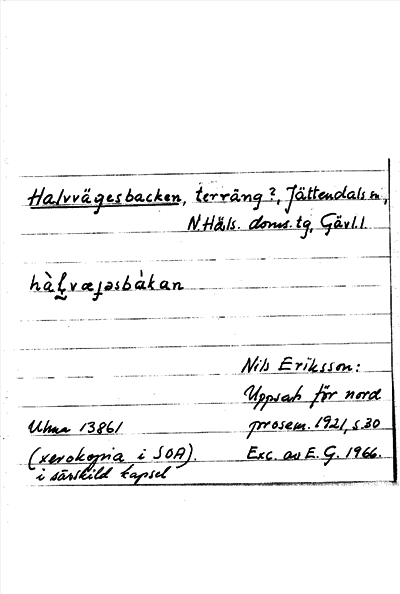 Halvvägesbacken, terräng?, Jättendals sn,
N. Häls. doms. tg, Gävl. l.
hàl̬væɟəsbákan
Nils Eriksson:
Uppsats för nord
Uhma 13861 prosem. 1921, s 30
(xerokopia i SOA). Exc. av E. G. 1966.
i särskild kapsel